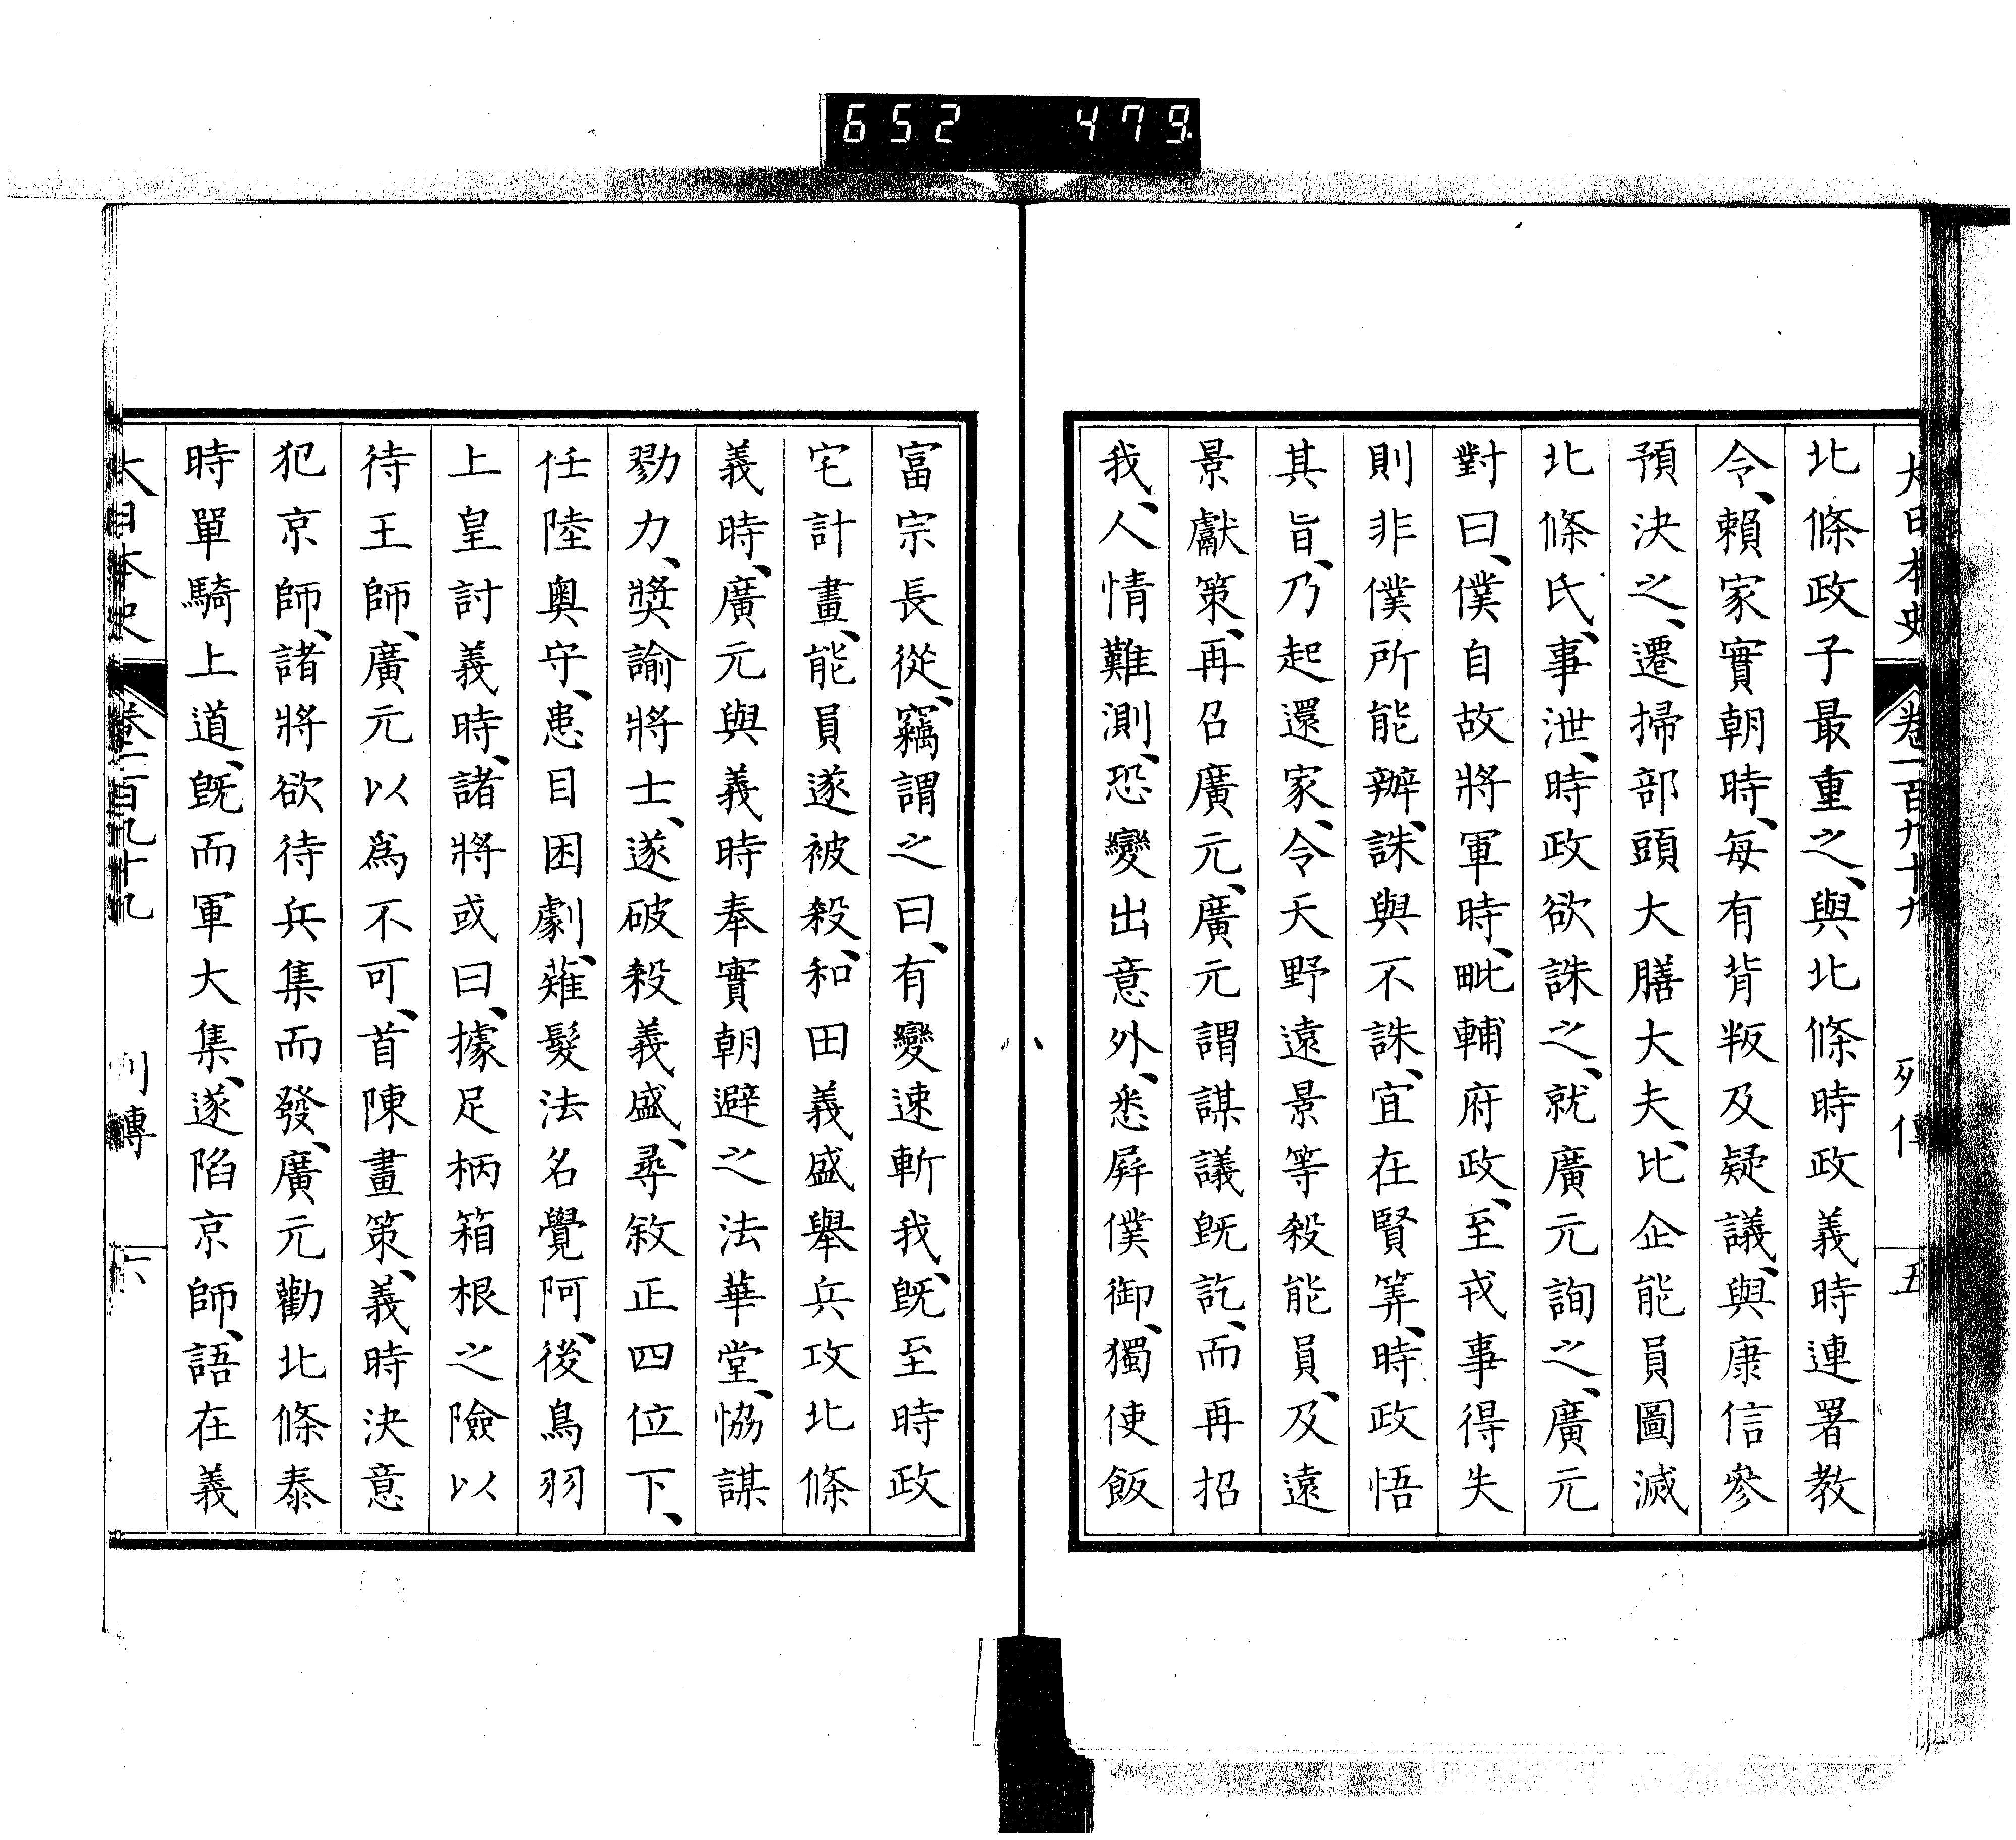 652 479
大日本史 卷一百九十九 列傳 五
北條政子最重之、與北條時政義時連署教
令、賴家實朝時、每有背叛及疑議、與康信參
預決之、遷掃部頭大膳大夫、比企能員圖滅
北條氏、事泄、時政欲誅之、就廣元詢之、廣元
對曰、僕自故將軍時、毗輔府政、至戎事得失
則非僕所能辨、誅與不誅、宜在賢筭、時政悟
其旨、乃起還家、令天野遠景等殺能員、及遠
景獻策、再召廣元、廣元謂謀議既訖、而再招
我、人情難測、恐變出意外、悉屏僕御、獨使飯
富宗長從、竊謂之曰、有變速斬我、既至時政
宅計畫、能員遂被殺、和田義盛舉兵攻北條
義時、廣元與義時奉實朝避之法華堂、恊謀
勠力、獎諭將士、遂破殺義盛、尋敘正四位下、
任陸奥守、患目困劇、薙髮法名覺阿、後鳥羽
上皇討義時、諸將或曰、據足柄箱根之險以
待王師、廣元以爲不可、首陳畫策、義時決意
犯京師、諸將欲待兵集而發、廣元勸北條泰
時單騎上道、既而軍大集、遂陷京師、語在義
大日本史 卷一百九十九 列傳 六